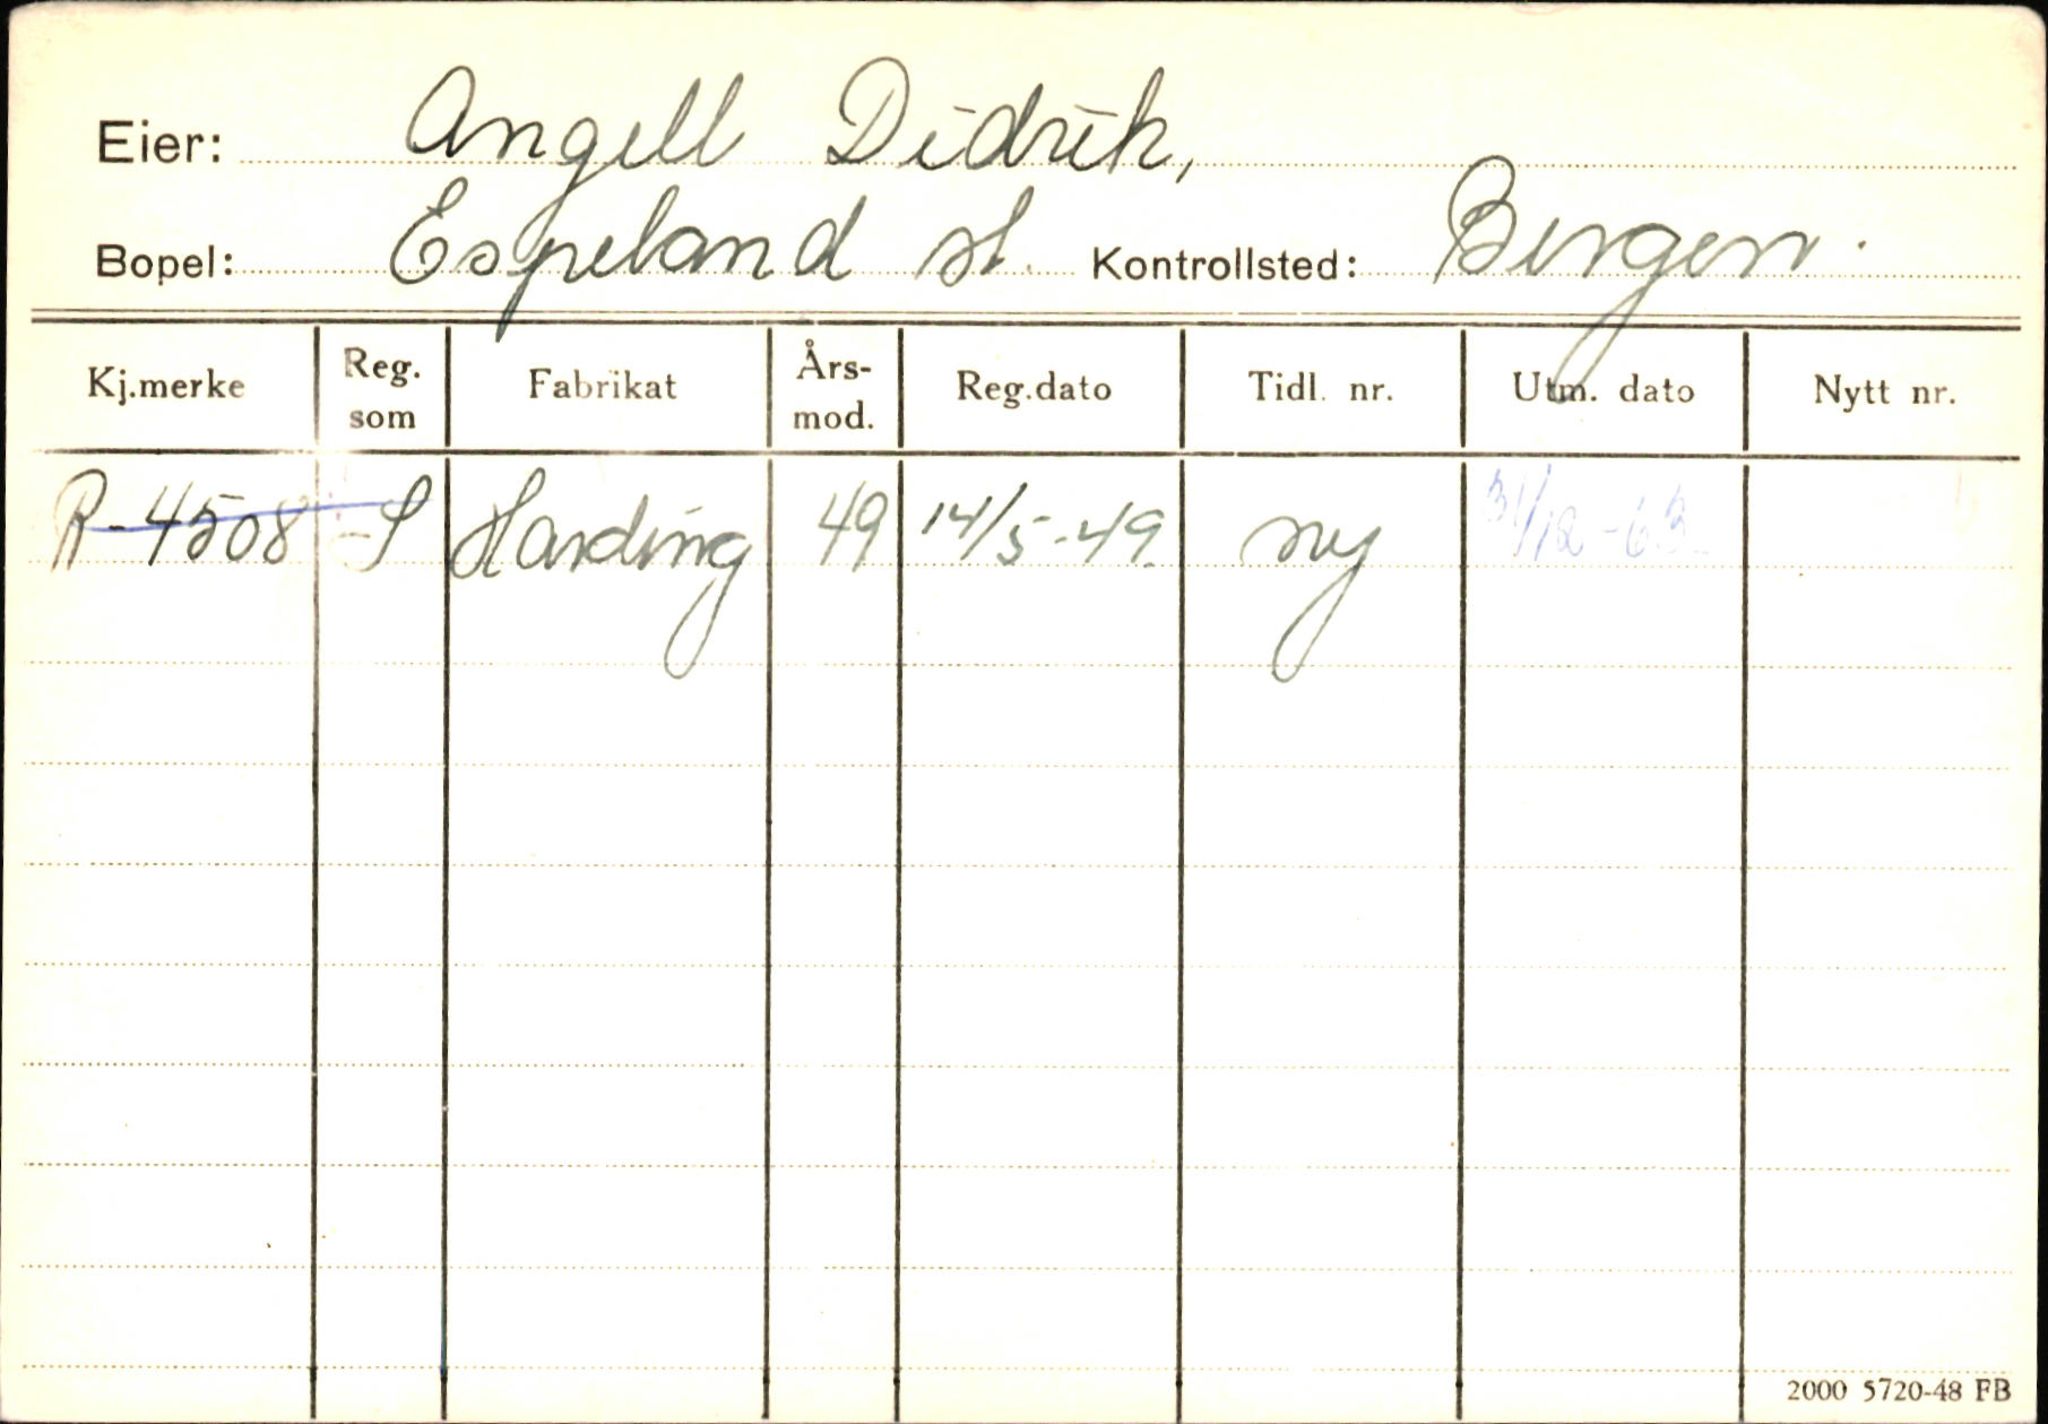 Eier: Angell Didrik,
Bopel: Espeland st. Kontrollsted: Bergen.
Kj.merke Reg. som Fabrikat Års-mod. Reg.dato Tidl. nr. Utm. dato Nytt nr.
R-4508 S Harding 49 14/5-49. ny 31/12-63
2000 5720-48 FB